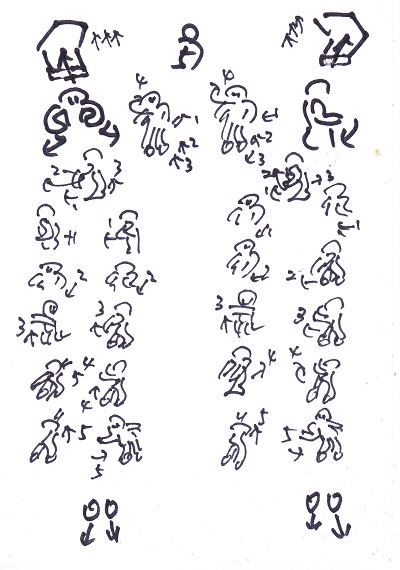 4
1 1
2 2
3 3
2 3 2 3
1 1
1 1 1
2 2 2 2
3 3 3 3
4 4 4 4
5 5 5
5